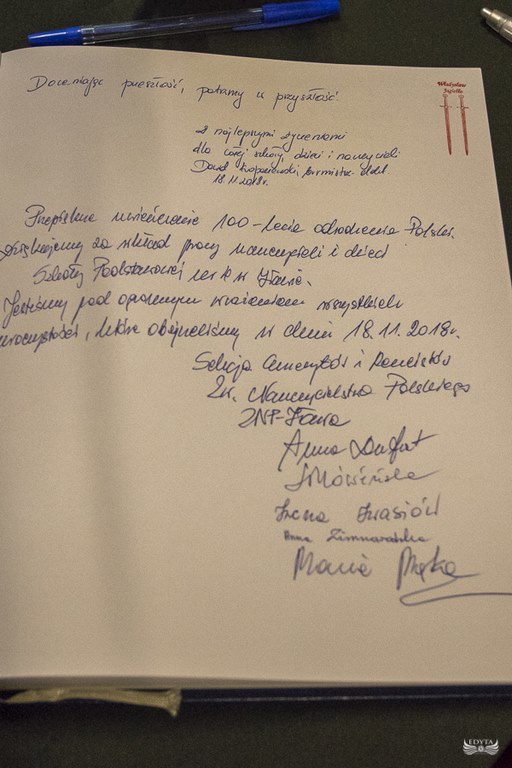 Doceniając przeszłość, patrzmy w przyszłość.
Władysław
Jagiełło
z najlepszymi życzeniami
dla całej szkoły, dzieci i nauczycieli
Dawid Kopaczewski, burmistrz elekt.
18.11.2018r.
Przepiękne uwieńczenie 100-lecia odrodzenia Polski.
Dziękujemy za wkład pracy nauczycieli i dzieci
Szkoły Podstawowej nr 4 w Iławie.
Jesteśmy pod ogromnym wrażeniem wszystkich
uroczystości, które obejrzeliśmy w dniu 18.11.2018r.
Sekcja Emerytów i Rencistów
Zw. Nauczycielstwa Polskiego
ZNP-Iława
Anna
Irena
Anna
Maria
EDYTA